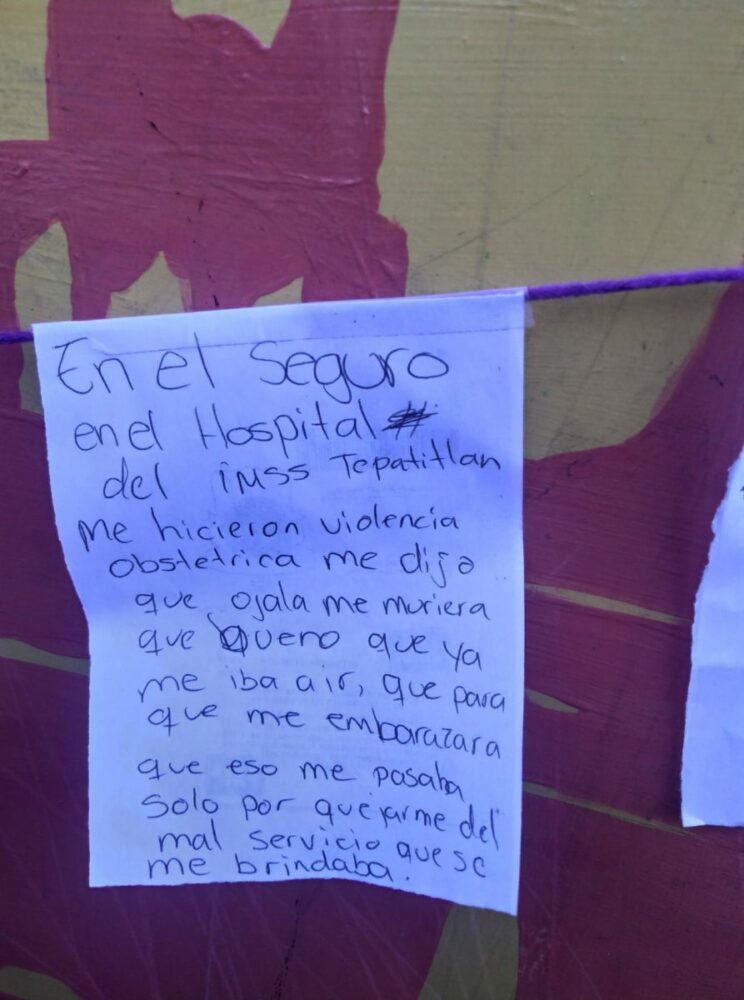 En el Seguro
en el Hospital #
del iMSS Tepatitlan
Me hicieron violencia
obstetrica me dijo
que ojala me muriera
que Queno que ya
me iba air, que para
que me embarazara
que eso me pasaba
solo por quejarme del
mal servicio que se
me brindaba.